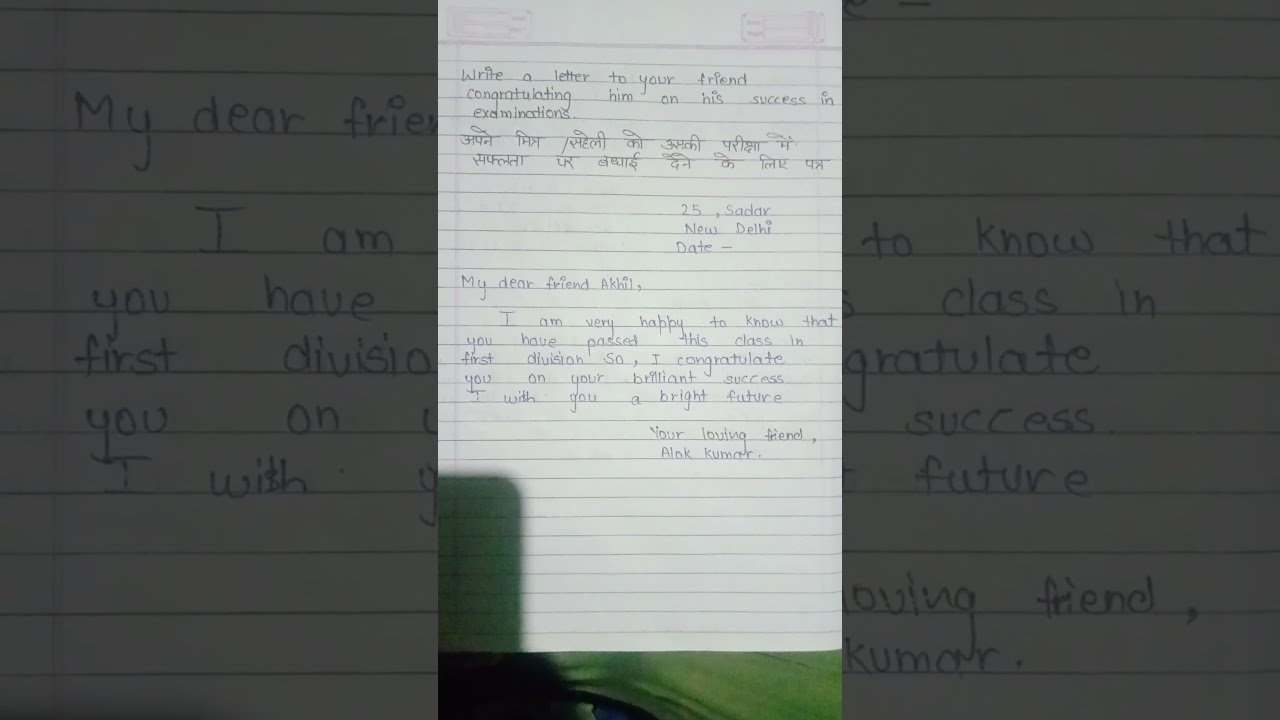 Write a letter to your friend
congratulating him on his success in
examinations.
अपने मित्र /सहेली को उसकी परीक्षा में
सफलता पर बधाई देने के लिए पत्र
25 , Sadar
New Delhi
Date -
My dear friend Akhil,
I am very happy to know that
you have passed this class in
first division So, I congratulate
you on your brilliant success
I with you a bright future
Your loving friend,
Alok kumar.